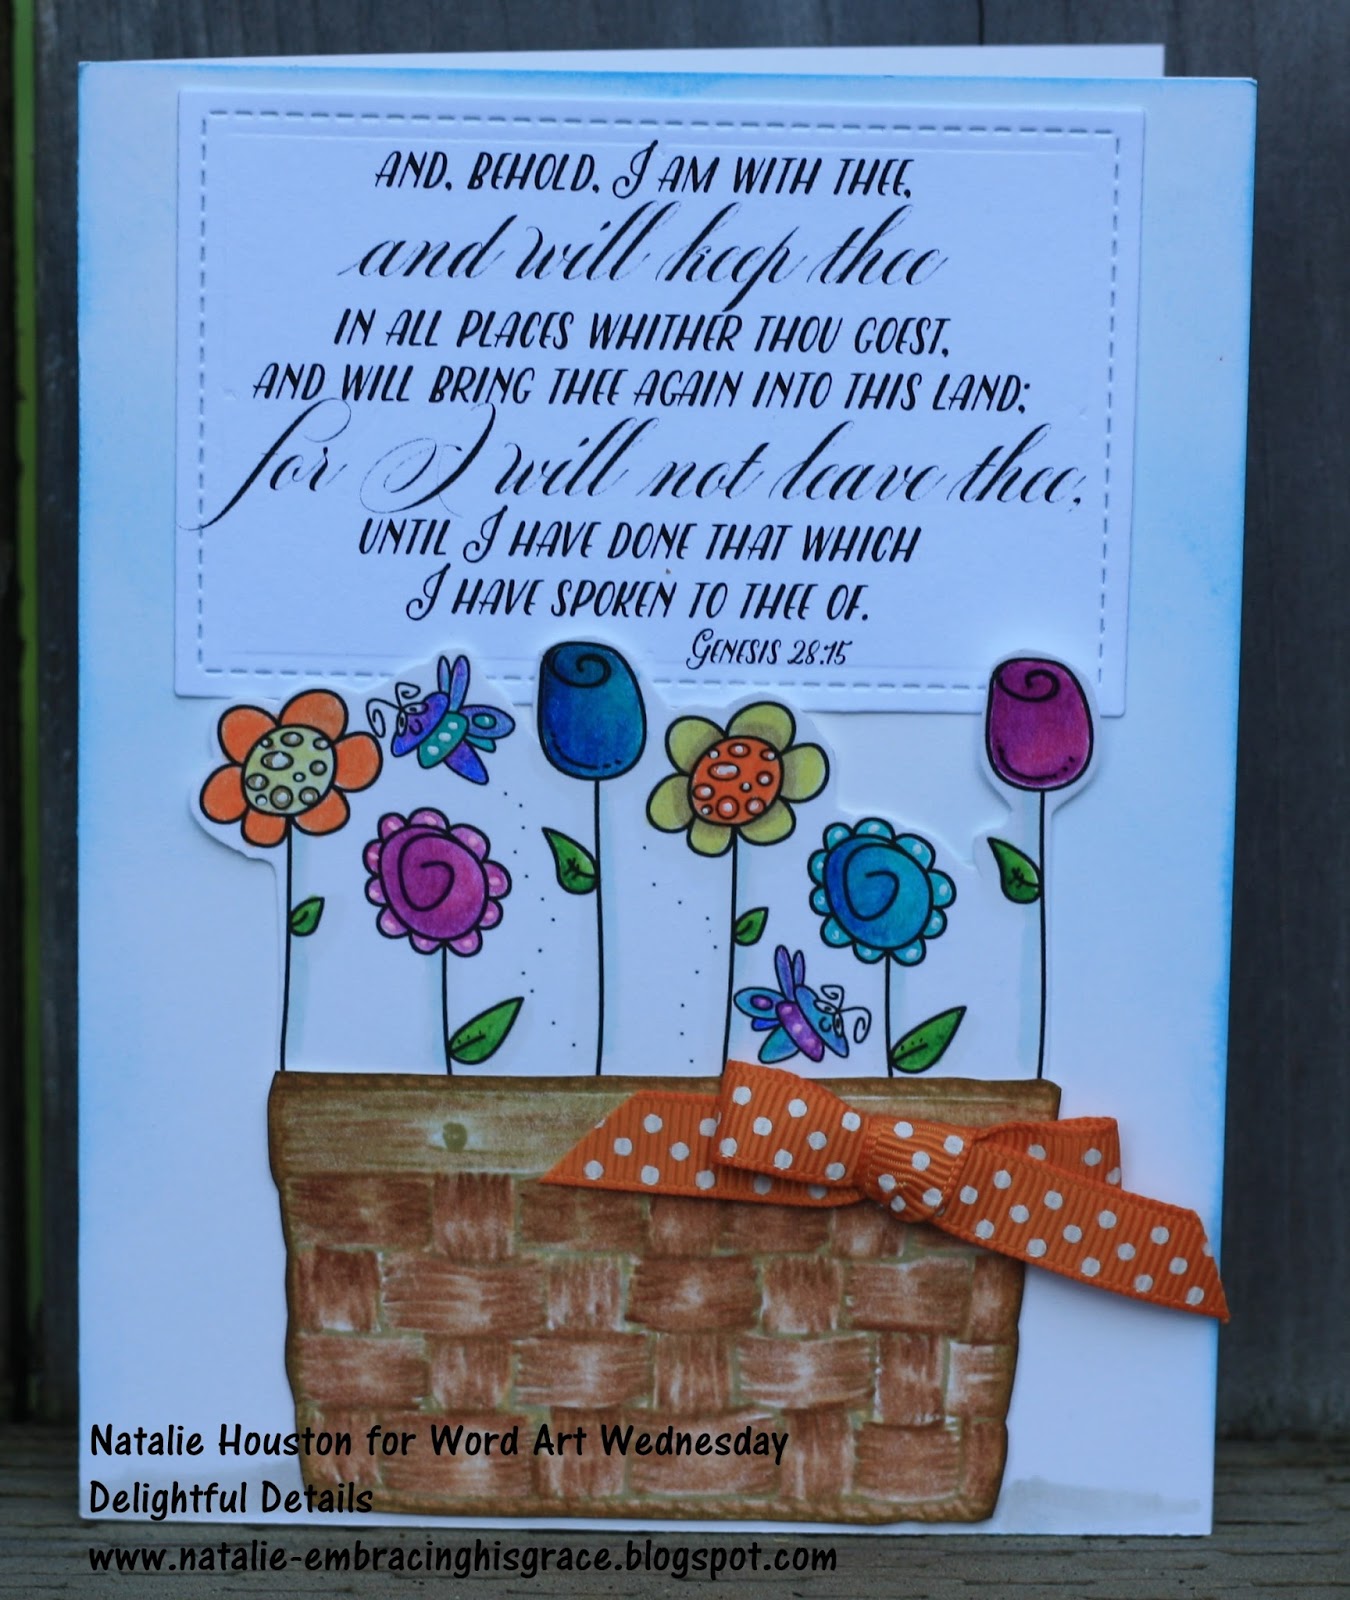 AND, BEHOLD, I AM WITH THEE,
and will keep thee
IN ALL PLACES WHITHER THOU GOEST,
AND WILL BRING THEE AGAIN INTO THIS LAND;
for I will not leave thee,
UNTIL I HAVE DONE THAT WHICH
I HAVE SPOKEN TO THEE OF.
GENESIS 28:15
Natalie Houston for Word Art Wednesday
Delightful Details
www.natalie-embracinghisgrace.blogspot.com